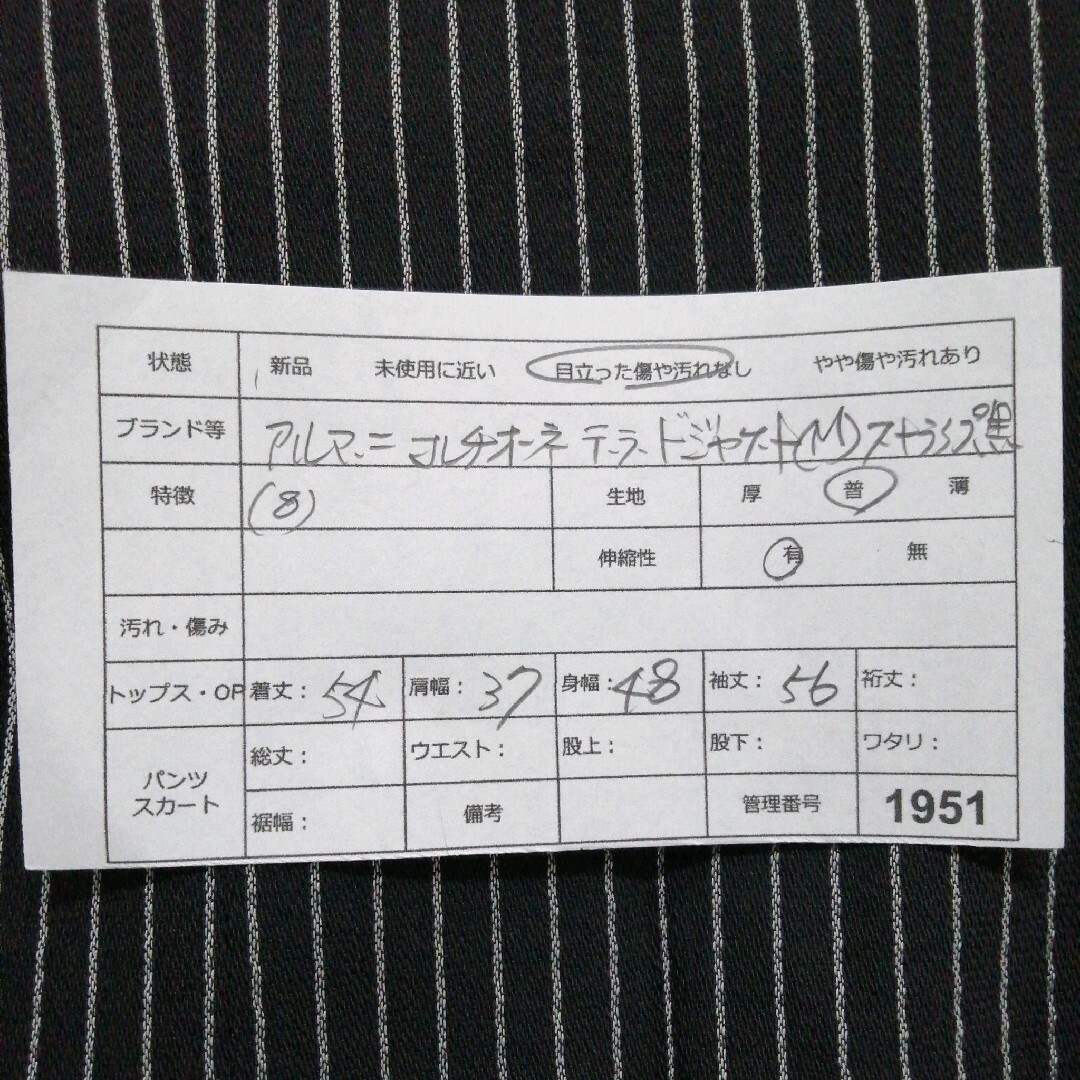 状態 新品 未使用に近い 目立った傷や汚れなし やや傷や汚れあり
ブランド等 アルマーニ コレチオーネ テーラードジャケット(M)ストライプ黒
特徴 (8) 生地 厚 普 薄
伸縮性 有 無
汚れ・傷み
トップス・OP 着丈: 54 肩幅: 37 身幅: 48 袖丈: 56 裄丈:
パンツ スカート 総丈: ウエスト: 股上: 股下: ワタリ:
裾幅: 備考 管理番号 1951